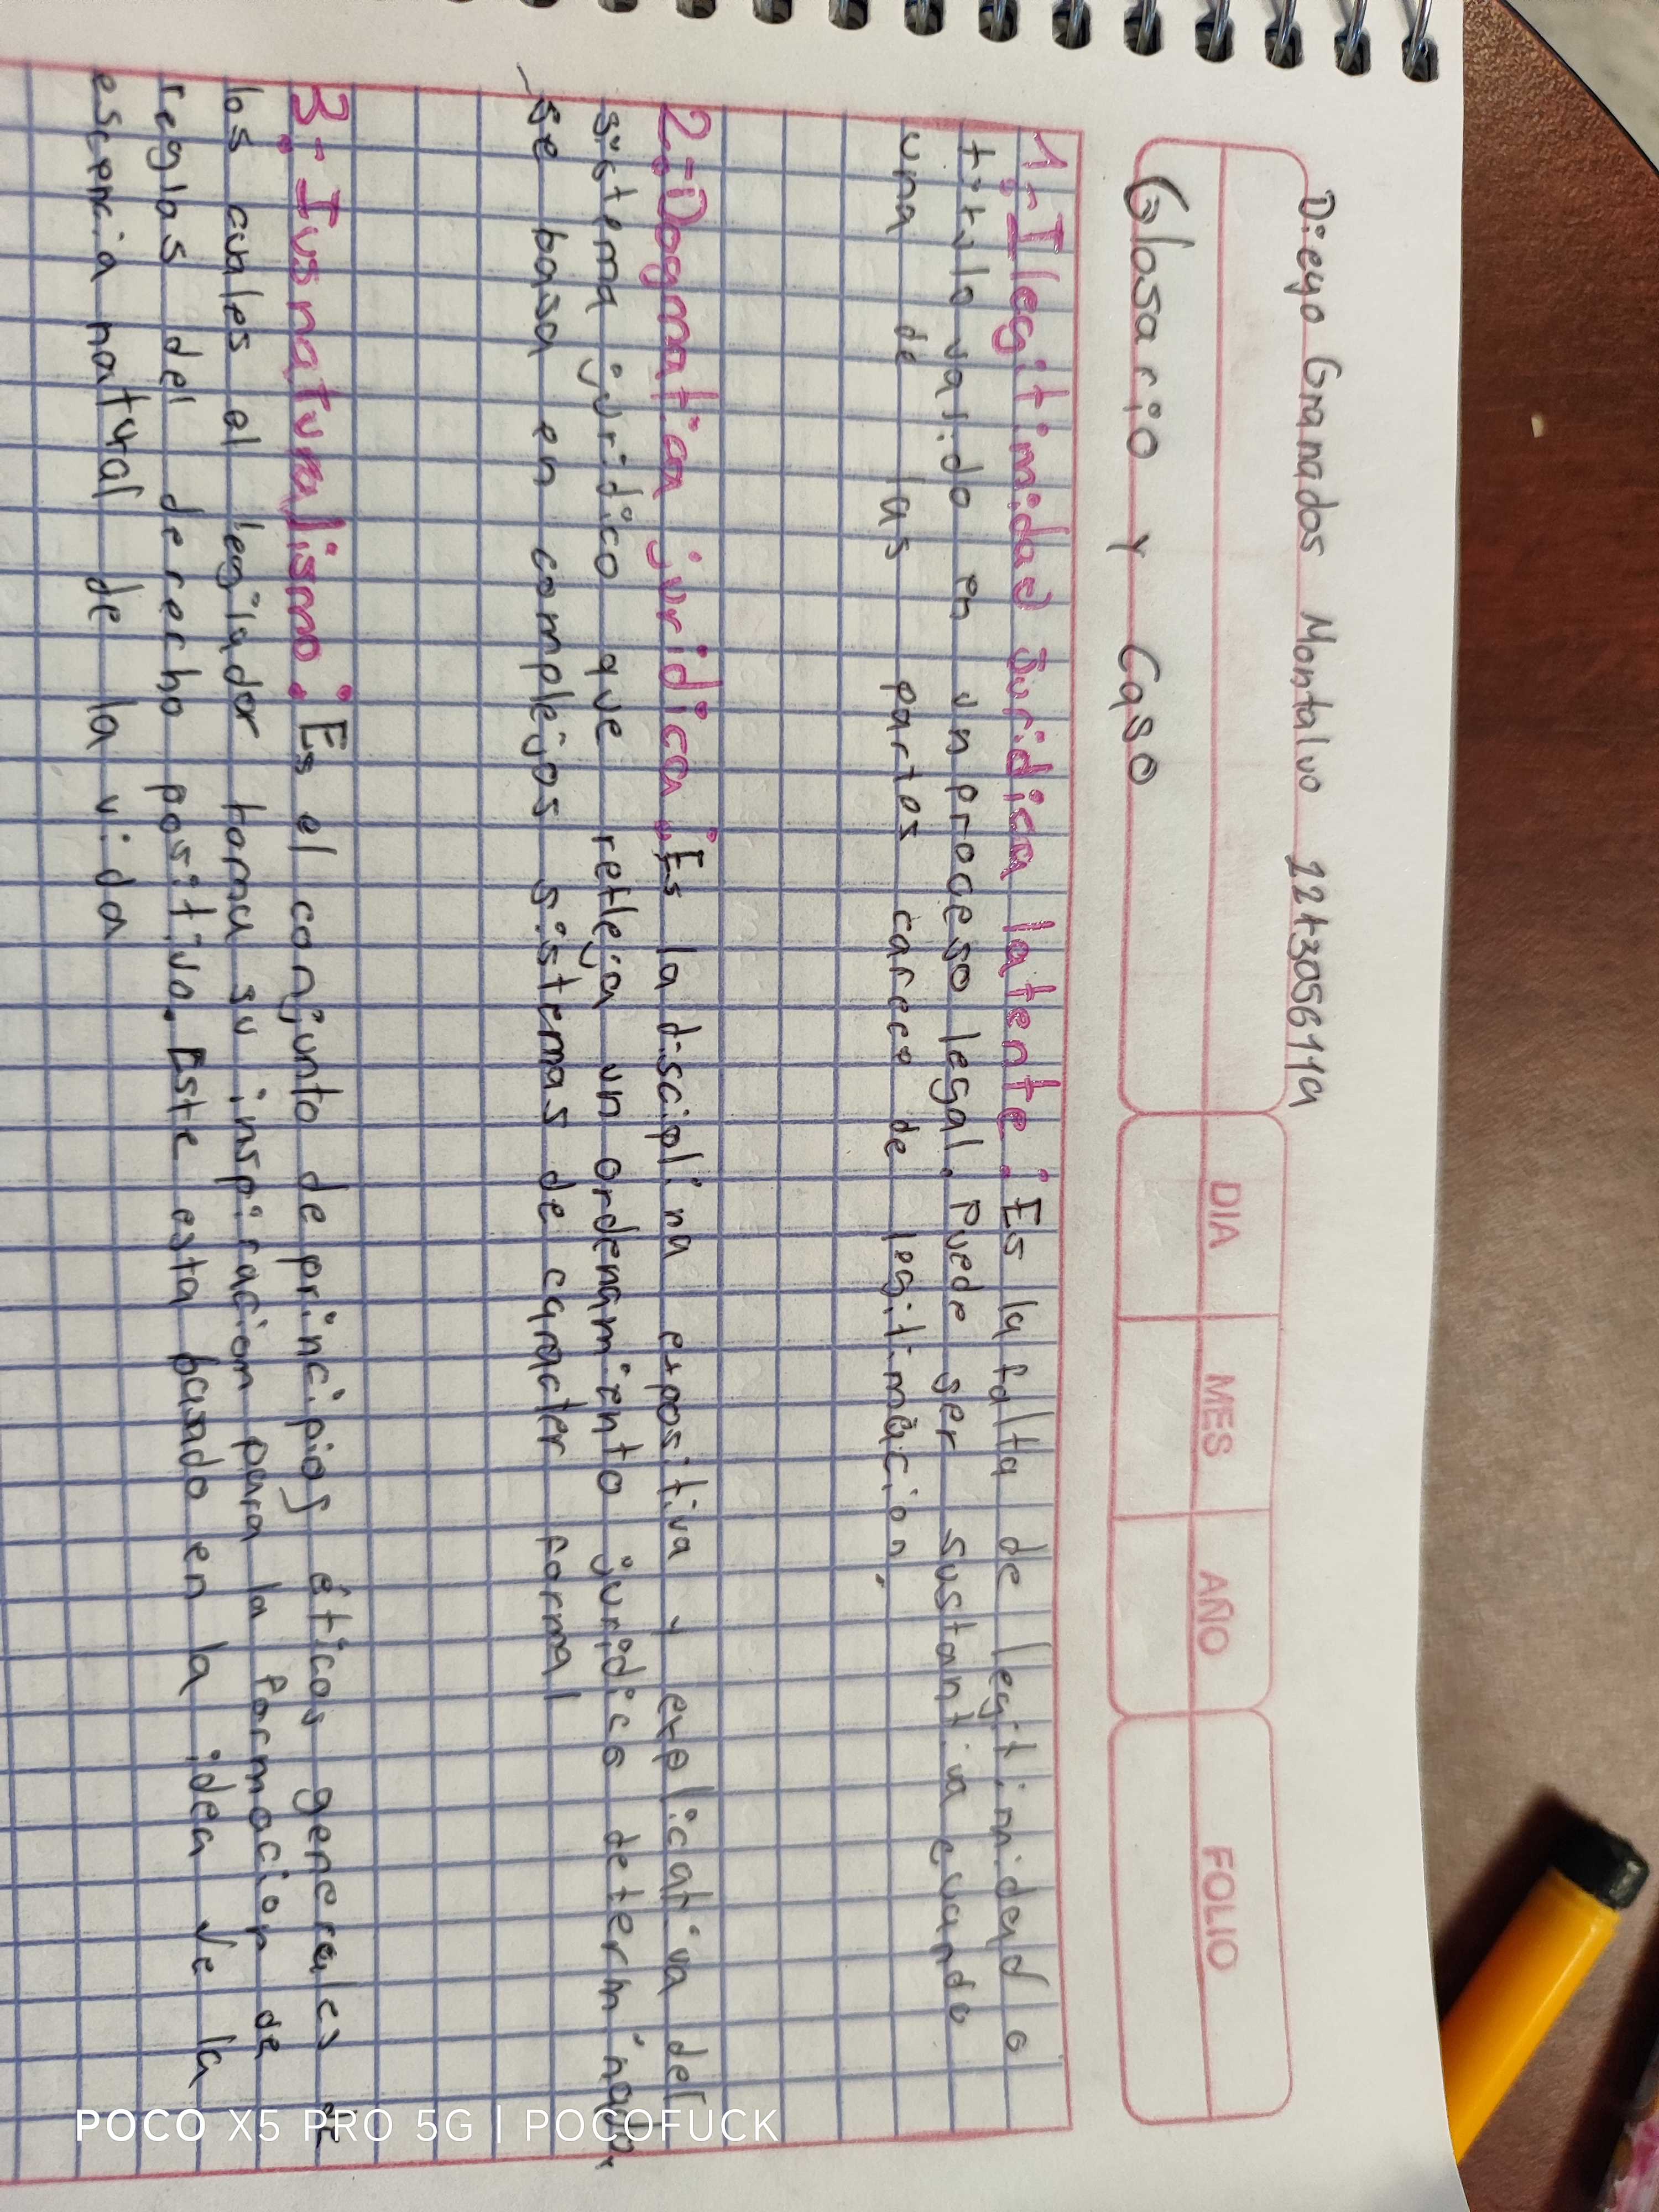 Diego Granados Montalvo 2273056119
DIA MES AÑO FOLIO
Glosario y Caso
1.- Ilegitimidad Juridica latente: Es la falta de legitimidad o
titulo valido en un proceso legal. Puede ser sustantiva cuando
una de las partes carece de legitimacion.
2.- Dogmatica juridica: Es la disciplina expositiva y explicativa del
sistema juridico que refleja un ordenamiento juridico determinado,
se basa en complejos sistemas de caracter formal
3.- Iusnaturalismo: Es el conjunto de principios éticos generales de
los cuales el legilador toma su inspiracion para la formacion de
reglas del derecho positivo. Este esta basado en la idea ve la
esencia natural de la vida
POCO X5 PRO 5G | POCOFUCK